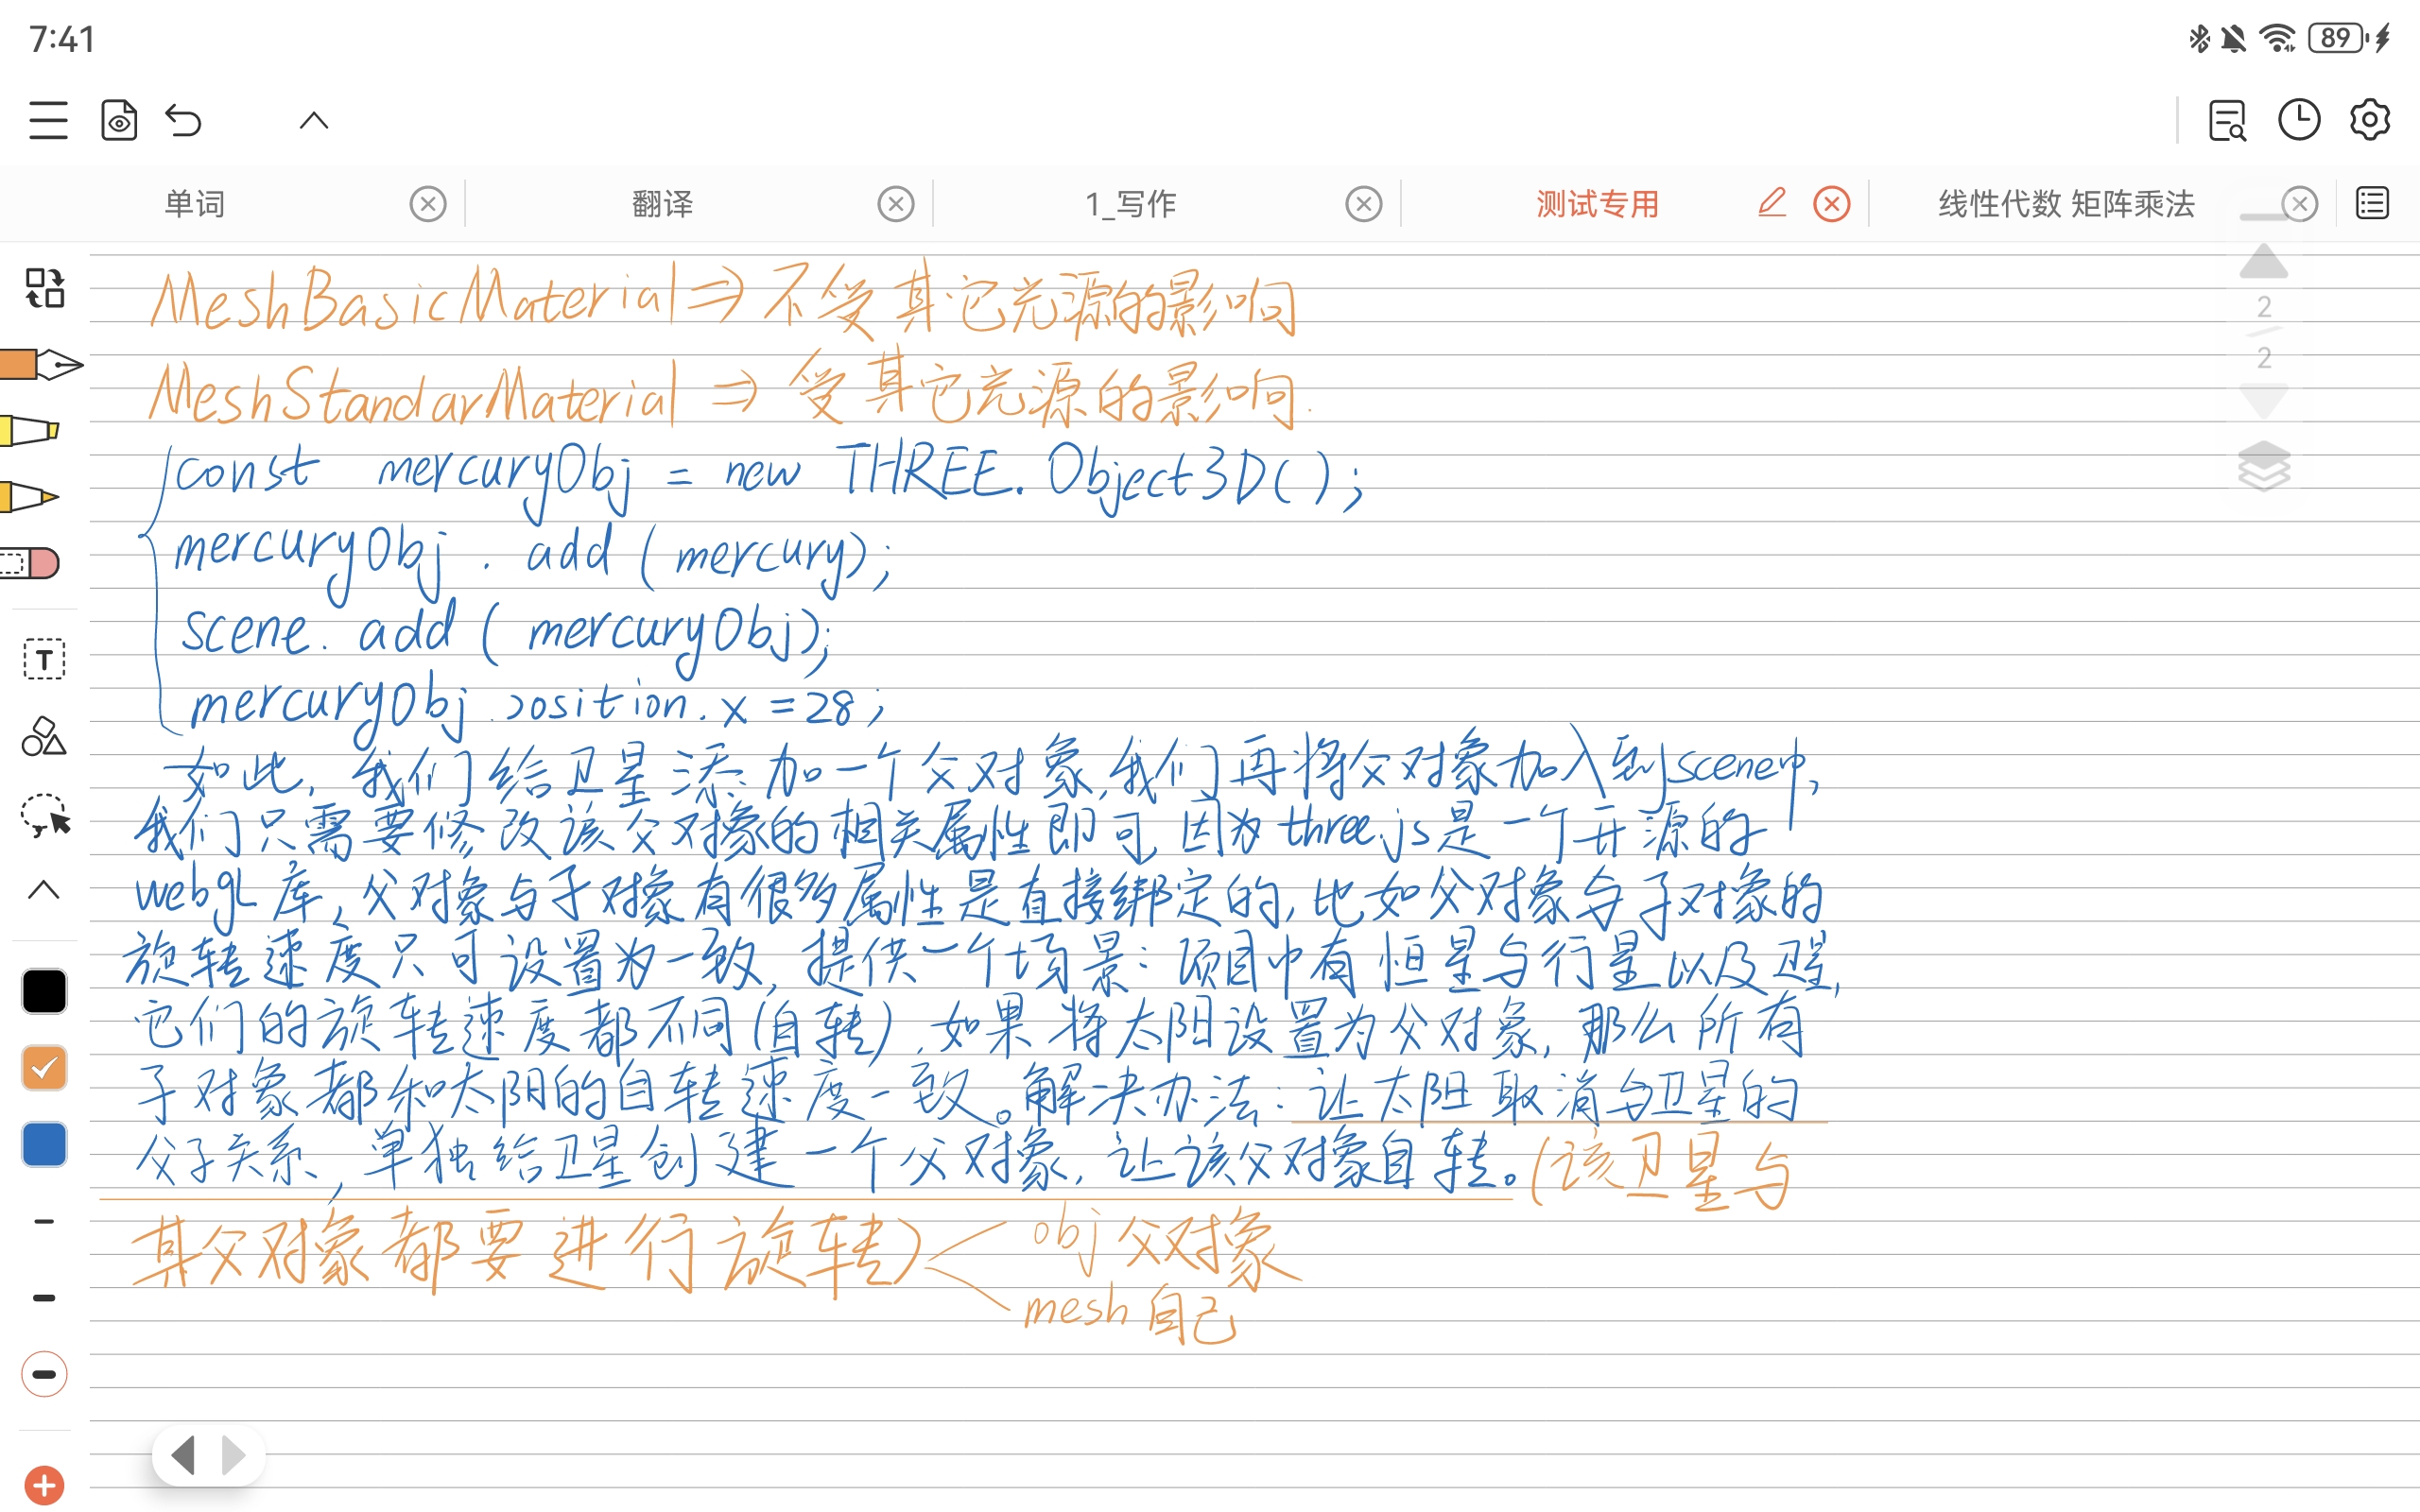 7:41
89
单词
翻译
1_写作
测试专用
线性代数 矩阵乘法
2
2
T
MeshBasicMaterial⇒不受其它光源的影响
MeshStandarMaterial⇒受其它光源的影响.
const mercuryObj = new THREE.Object3D();
mercuryObj.add(mercury);
scene.add(mercuryObj);
mercuryObj.position.x=28;
如此,我们给卫星添加一个父对象,我们再将父对象加入到scene中,
我们只需要修改该父对象的相关属性即可,因为three.js是一个开源的
webgl库,父对象与子对象有很多属性是直接绑定的,比如父对象与子对象的
旋转速度只可设置为一致,提供一个场景:项目中有恒星与行星以及卫星,
它们的旋转速度都不同(自转),如果将太阳设置为父对象,那么所有
子对象都和太阳的自转速度一致。解决办法:让太阳取消与卫星的
父子关系,单独给卫星创建一个父对象,让该父对象自转。(该卫星与
其父对象都要进行旋转)
obj父对象
mesh自己